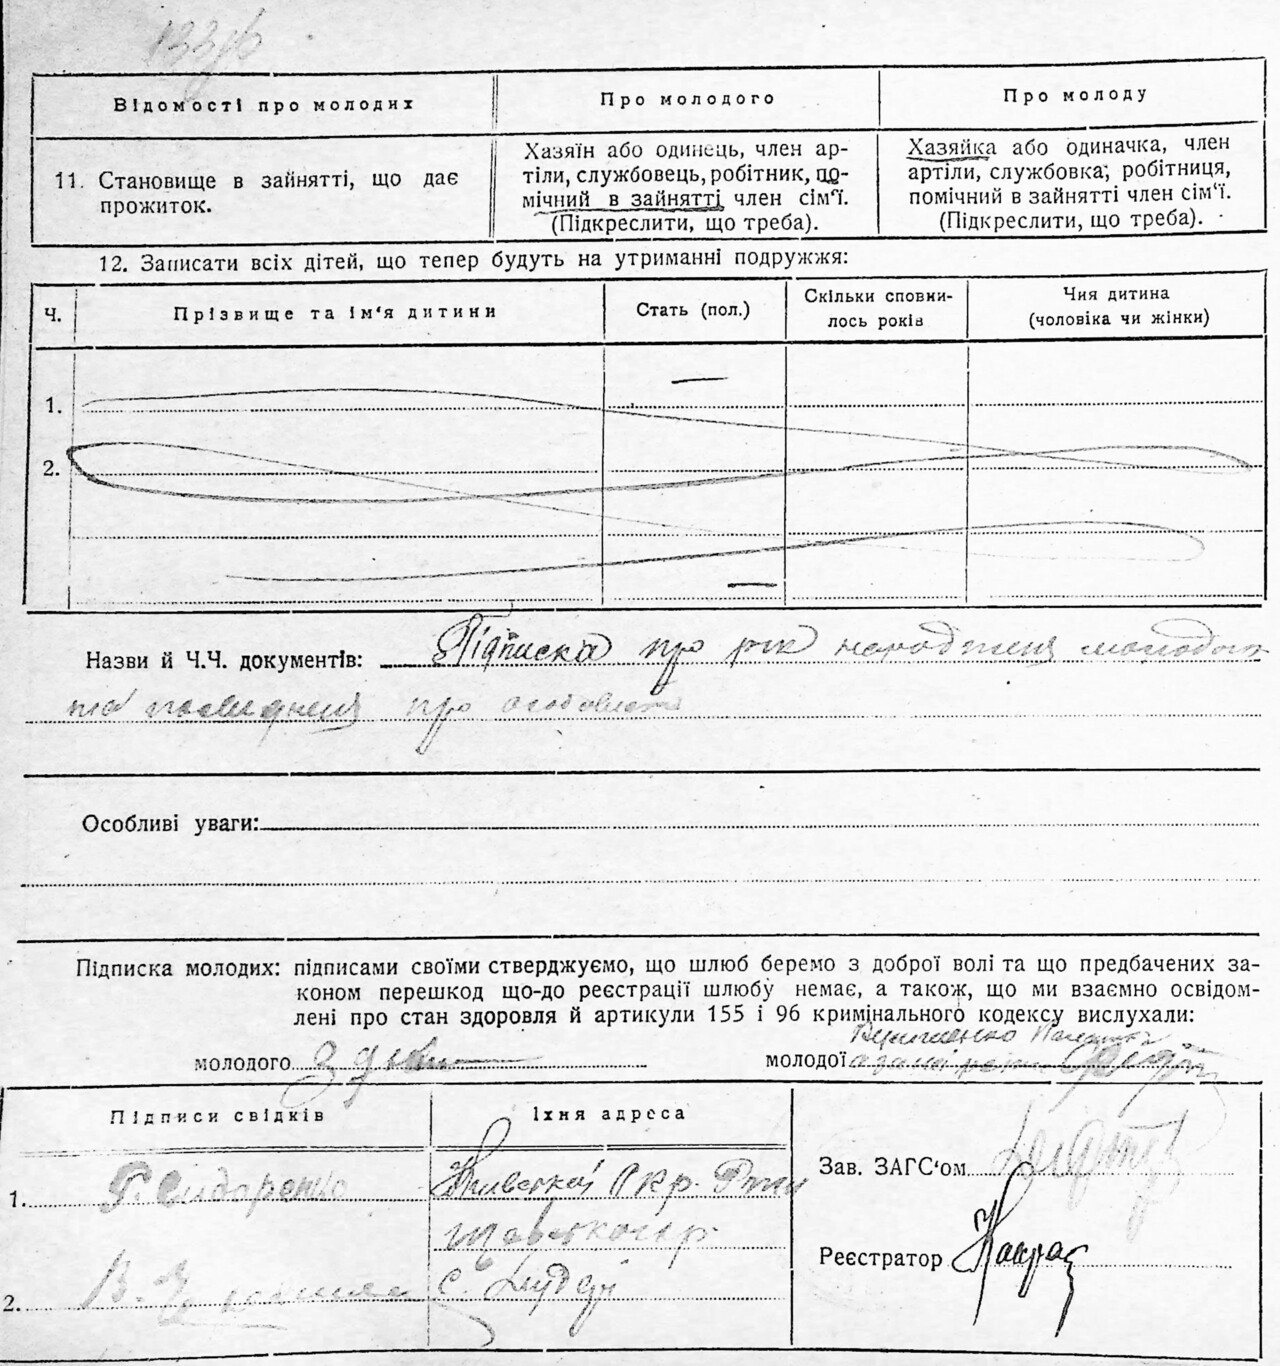 Відомості про молодих
Про молодого
Про молоду
11. Становище в зайнятті, що дає
прожиток.
Хазяїн або одинець, член ар-
тіли, службовець, робітник, по-
мічний в зайнятті член сім‘ї.
(Підкреслити, що треба).
Хазяйка або одиначка, член
артіли, службовка, робітниця,
помічний в зайнятті член сім‘ї.
(Підкреслити, що треба).
12. Записати всіх дітей, що тепер будуть на утриманні подружжя:
Ч.
Прізвище та ім‘я дитини
Стать (пол.)
Скільки сповни-
лось років
Чия дитина
(чоловіка чи жінки)
1.
2.
Назви й Ч.Ч. документів: Підписка про рік народження молодого
та посвідчення про особовість
Особливі уваги:
Підписка молодих: підписами своїми стверджуємо, що шлюб беремо з доброї волі та що предбачених за-
коном перешкод що-до реєстрації шлюбу немає, а також, що ми взаємно освідом-
лені про стан здоровля й артикули 155 і 96 кримінального кодексу вислухали:
молодого
молодої
Підписи свідків
Їхня адреса
1. Г. Сидоренко
Київської Окр.
2. В.
с.
Зав. ЗАГС‘ом
Реєстратор